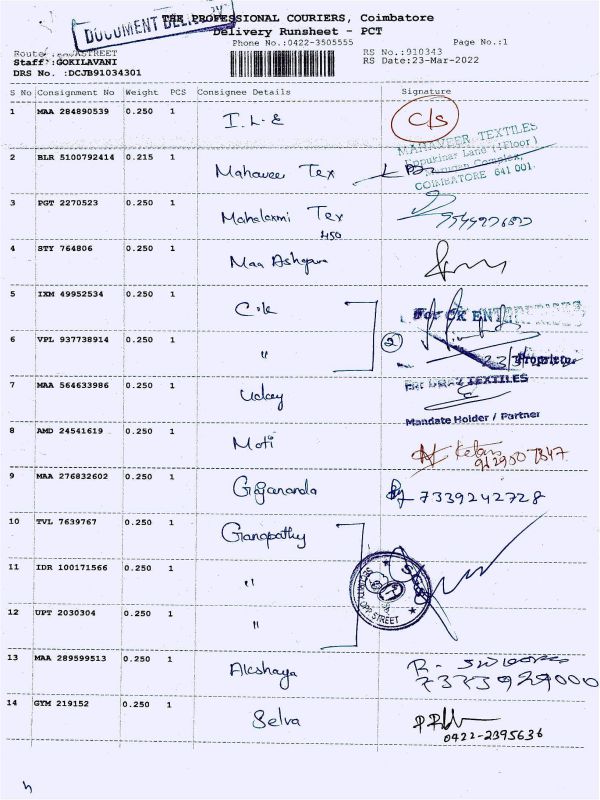 DOCUMENT
THE PROFESSIONAL COURIERS, Coimbatore
Delivery Runsheet - PCT
Phone No.:0422-3505555 Page No.:1
Route : STREET RS No.:910343
Staff :GOKILAVANI RS Date:23-Mar-2022
DRS No. :DCJB91034301
S No Consignment No Weight PCS Consignee Details Signature
1 MAA 284890539 0.250 1 I.L.E C/s
MAHAVEER TEXTILES
2 BLR 5100792414 0.215 1 Mahaveer Tex
COIMBATORE 641 001
3 PGT 2270523 0.250 1 Mahalaxmi Tex
450
4 STY 764806 0.250 1 Maa Ashapura
5 IXM 49952534 0.250 1 C.K For CK ENTERPRISES
6 VPL 937738914 0.250 1 " 2 Proprietor
7 MAA 564633986 0.250 1 Uday TEXTILES
Mandate Holder / Partner
8 AMD 24541619 0.250 1 Moti
9 MAA 276832602 0.250 1 Gajananda 7339242728
10 TVL 7639767 0.250 1 Ganapathy
11 IDR 100171566 0.250 1 "
OPP STREET
12 UPT 2030304 0.250 1 "
13 MAA 289599513 0.250 1 Akshaya
7373929000
14 GYM 219152 0.250 1 Selva
0422-2395636